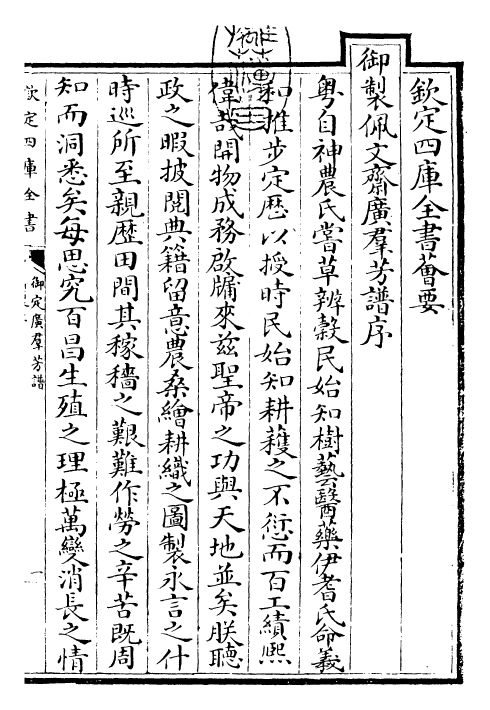 欽定四庫全書薈要
御製佩文齋廣羣芳譜序
粤自神農氏嘗草辨穀民始知樹藝醫藥伊耆氏命羲
和推步定歴以授時民始知耕穫之不愆而百工績熈
偉哉開物成務啟牖來兹聖帝之功與天地並矣朕聽
政之暇披閱典籍留意農桑繪耕織之圖製永言之什
時巡所至親歴田間其稼穡之艱難作勞之辛苦既周
知而洞悉矣每思究百昌生殖之理極萬變消長之情
欽定四庫全書
御定廣羣芳譜
一